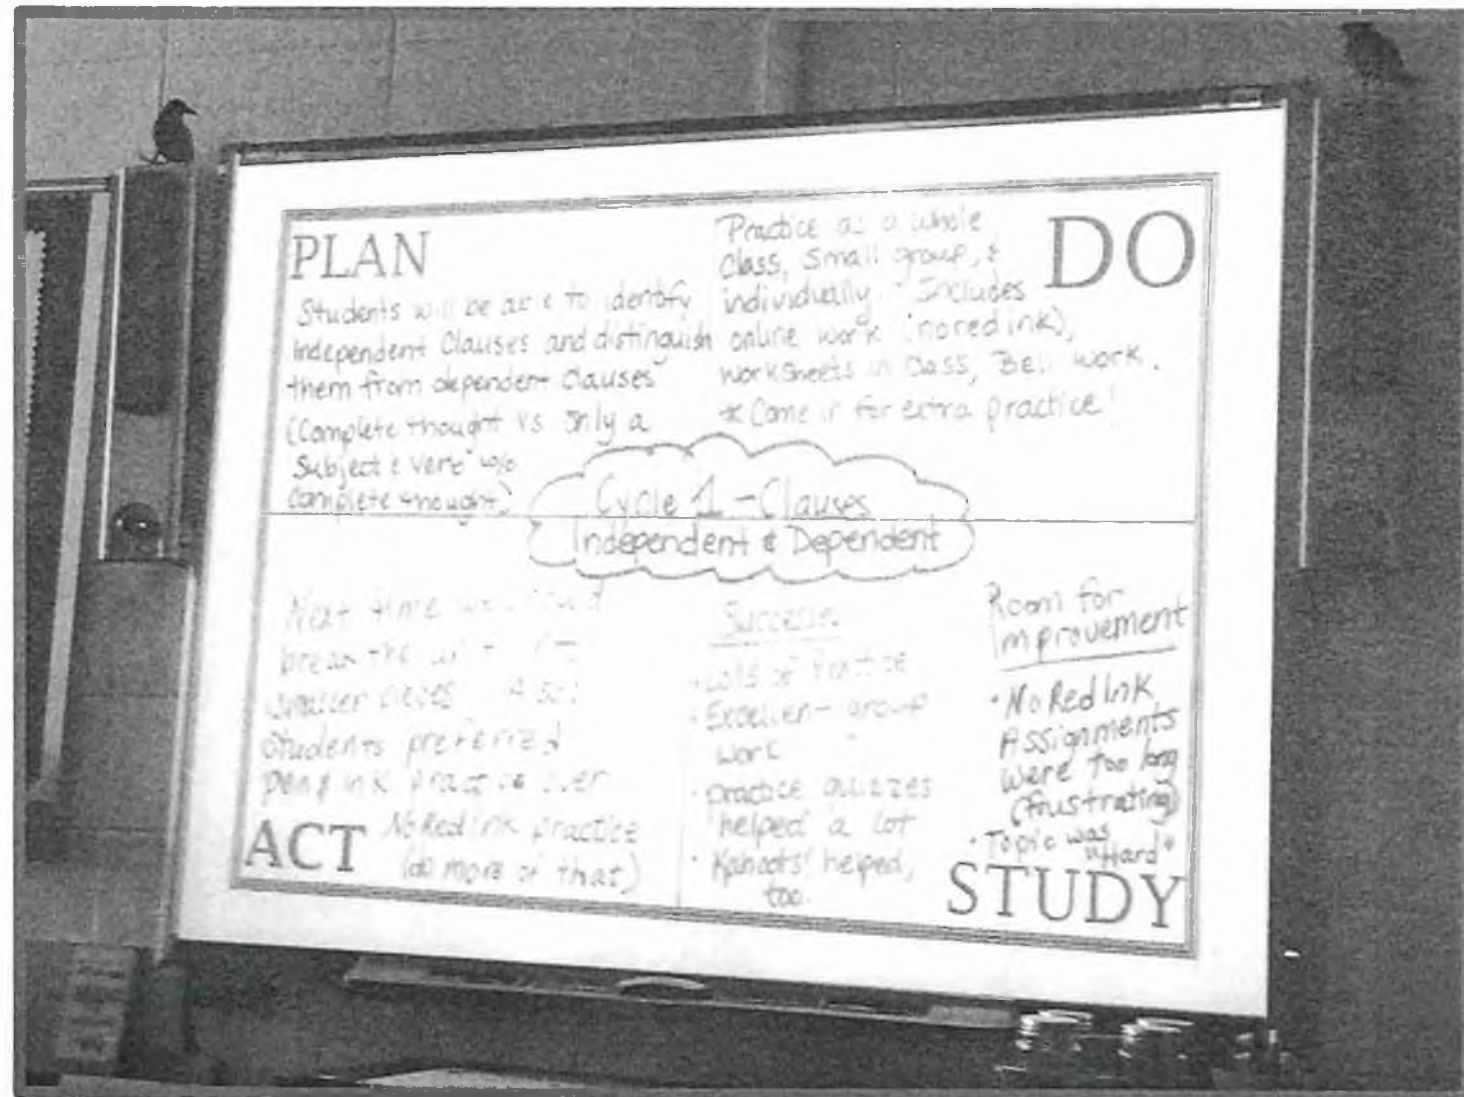 PLAN
Students will be able to identify
Independent Clauses and distinguish
them from dependent Clauses
(Complete thought vs only a
Subject & verb w/o
Complete thought)
DO
Practice as a whole
Class, Small group, &
individually. Includes
online work (noredink),
worksheets in Class, Bell work.
* Come in for extra practice!
Cycle 1 - Clauses
Independent & Dependent
Next time
break the
smaller pieces Also
Students preferred
Pen & ink practice over
NoRedInk practice
(do more of that)
ACT
Successes
• Lots of Practice
• Excellent group
work
• practice quizzes
helped a lot
• Kahoots! helped,
too.
Room for
Improvement
• NoRedInk
Assignments
were too long
(frustrating)
• Topic was
"Hard"
STUDY